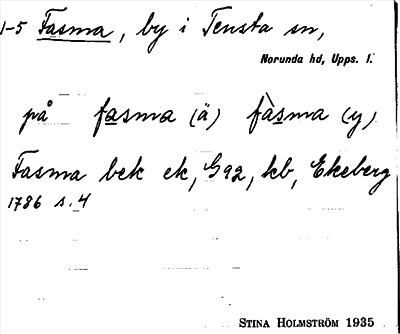 1-5 Fasma, by i Tensta sn,
Norunda hd, Upps. l.
på fasma (ä) fàsma (y)
Fasma bek ek, G92, kb, Ekeberg
1786 s. 4
STINA HOLMSTRÖM 1935